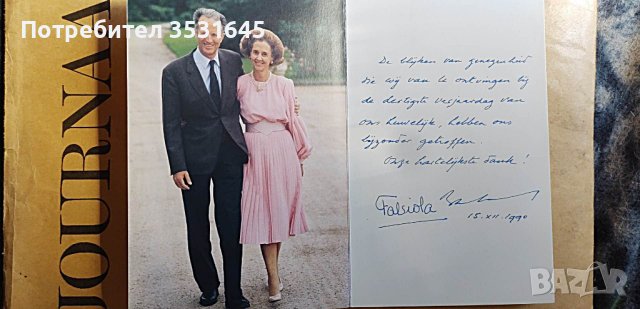 Потребител 3531645
JOURNAA
De blijken van genegenheid
die wij van U ontvingen bij
de dertigste verjaardag van
ons huwelijk, hebben ons
bijzonder getroffen.
Onze hartelijkste dank!
Fabiola
15.XII.1990
BAZAR